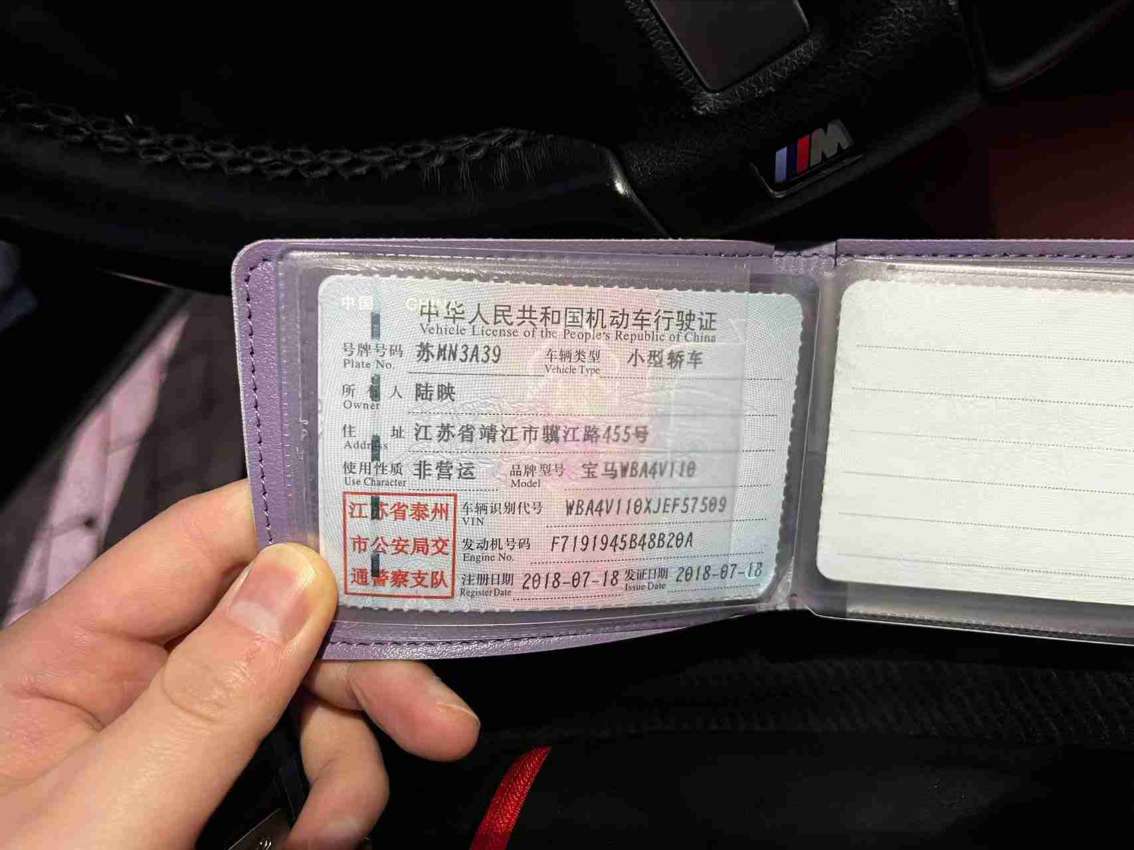 M
中国 CHINA
中华人民共和国机动车行驶证
Vehicle License of the People's Republic of China
号牌号码 苏MN3A39 车辆类型 小型轿车
Plate No. Vehicle Type
所有人 陆映
Owner
住址 江苏省靖江市骥江路455号
Address
使用性质 非营运 品牌型号 宝马WBA4V110
Use Character Model
江苏省泰州
市公安局交
通警察支队
车辆识别代号 WBA4V110XJEF57509
VIN
发动机号码 F7191945B48B20A
Engine No.
注册日期 2018-07-18 发证日期 2018-07-18
Register Date Issue Date